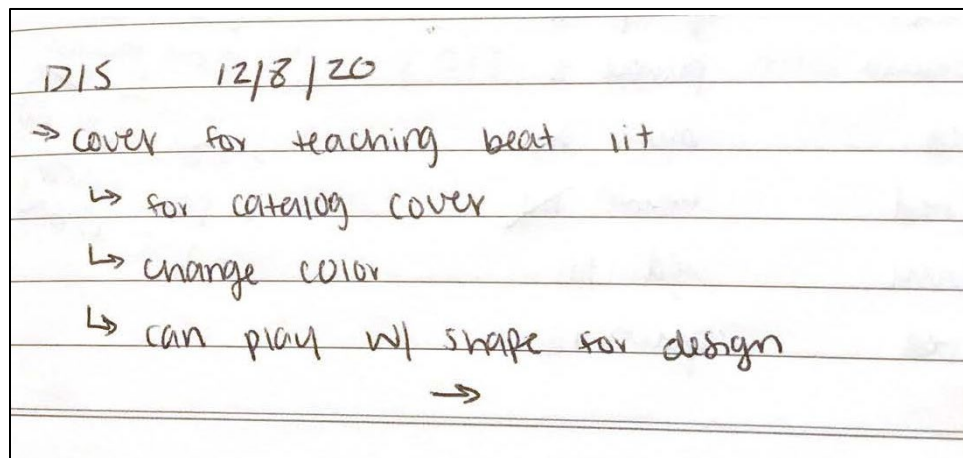 DIS 12/8/20
→ cover for teaching beat lit
↳ for catalog cover
↳ change color
↳ can play w/ shape for design
→